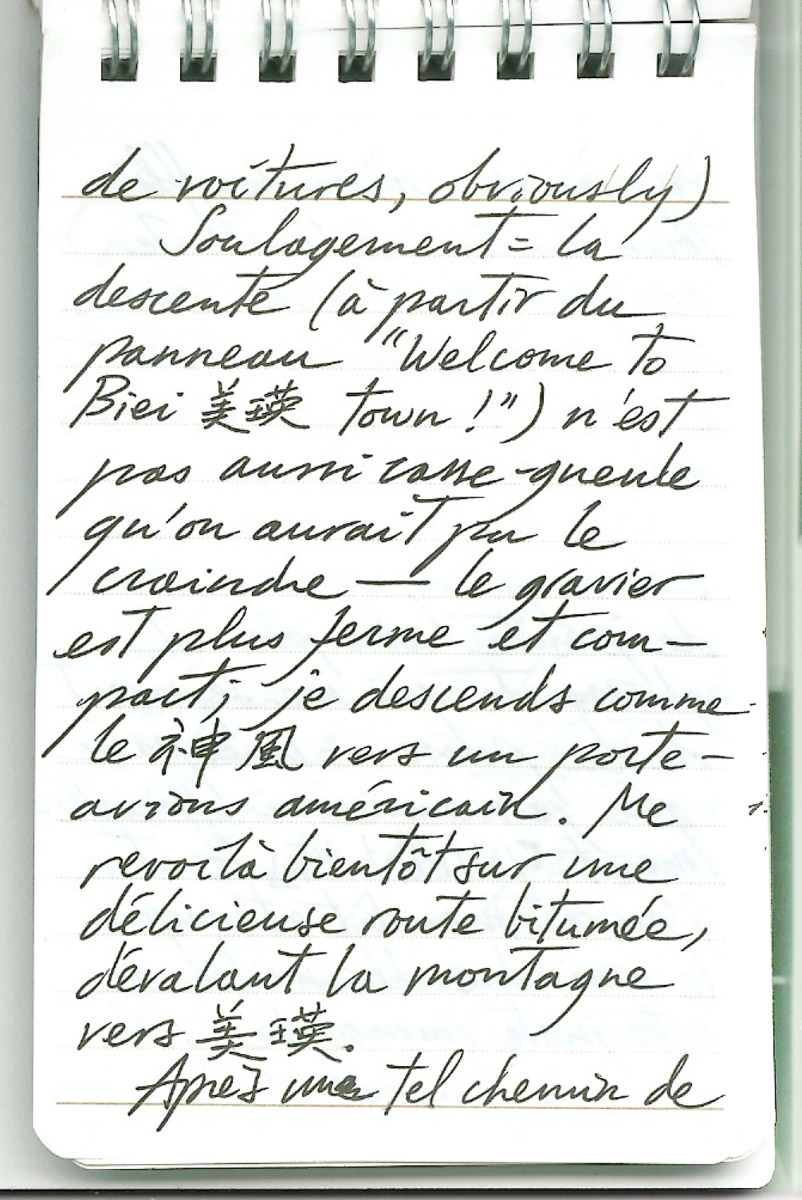 de voitures, obviously)
Soulagement = la
descente (à partir du
panneau "Welcome to
Biei 美瑛 town !") n'est
pas aussi casse-gueule
qu'on aurait pu le
craindre — le gravier
est plus ferme et com-
pact ; je descends comme
le 神風 vers un porte-
avions américain. Me
revoilà bientôt sur une
délicieuse route bitumée,
dévalant la montagne
vers 美瑛.
Après un tel chemin de